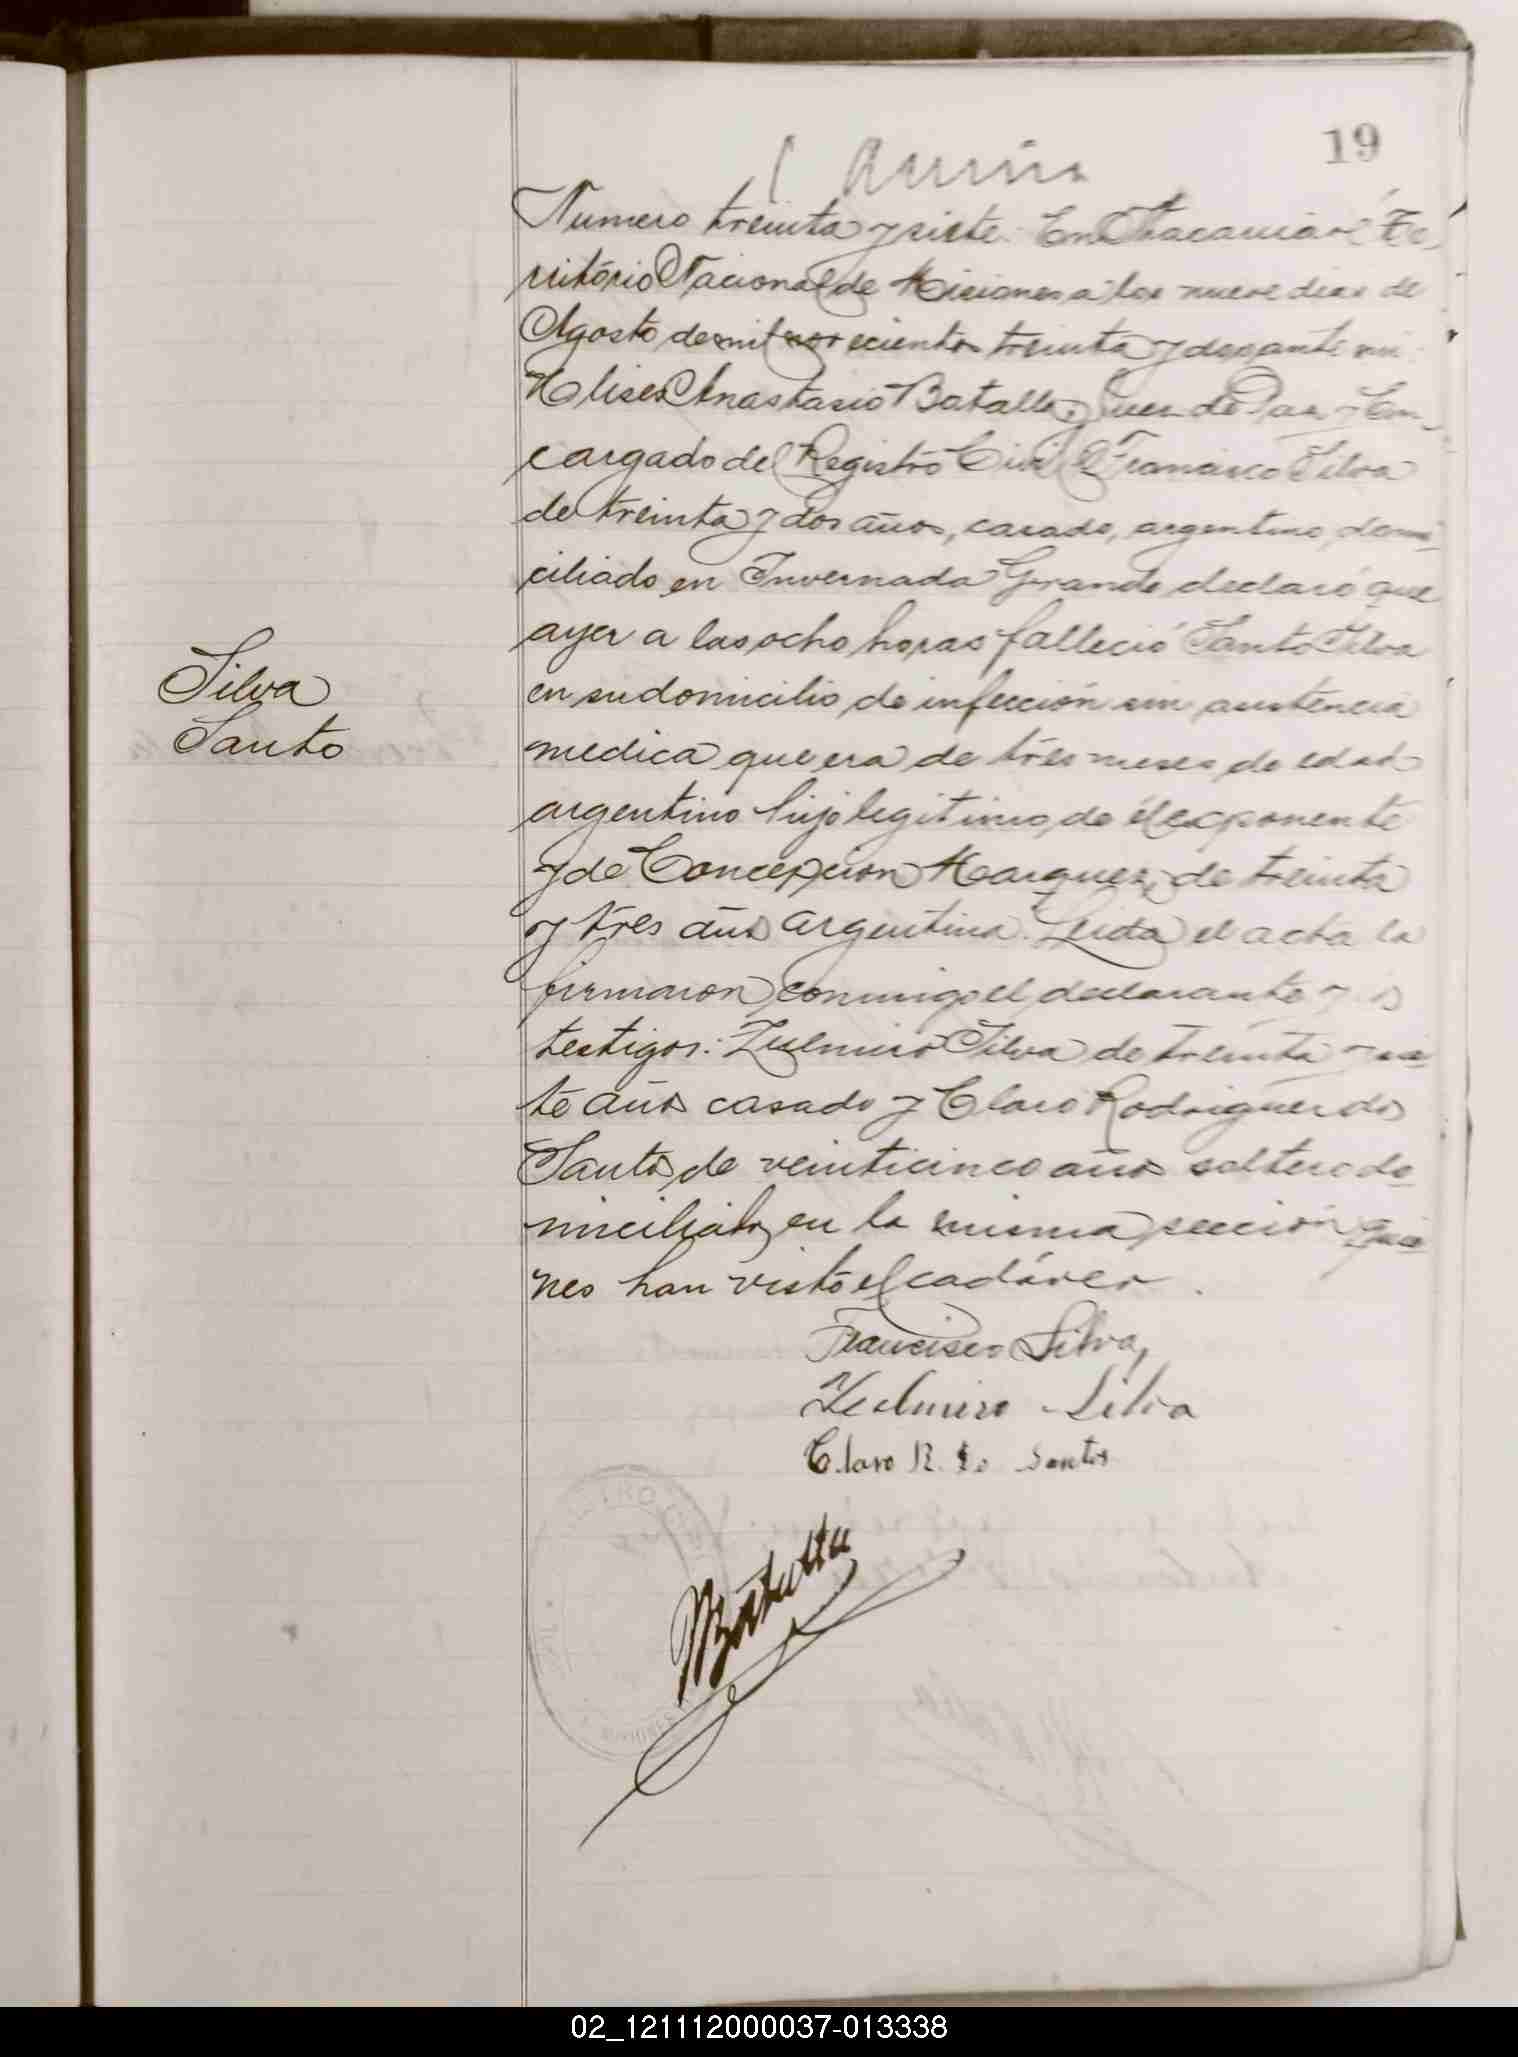 19
Numero treinta y siete. En Itacaruaré Te-
rritório Nacional de Misiones a los nueve dias de
Agosto de mil novecientos treinta y dos ante mi
Ulises Anastasio Batalla, Juez de Paz y En-
cargado del Registro Civil Francisco Silva
de treinta y dos años, casado, argentino, domi-
ciliado en Invernada Grande declaró que
ayer a las ocho horas falleció Santo Silva
en su domicilio de infección sin asistencia
medica que era de tres meses de edad
argentino hijo legitimo de él exponente
y de Concepcion Marquez, de treinta
y tres años argentina. Leida el acta la
firmaron conmigo el declarante y
testigos: Zulmiro Silva de treinta y sie-
te años casado y Claro Rodriguez do
Santos de veinticinco años soltero do-
miciliados en la misma sección quie-
nes han visto el cadáver
Silva
Santo
Francisco Silva,
Zulmiro Silva
Claro R. do Santos
Batalla
02_121112000037-013338